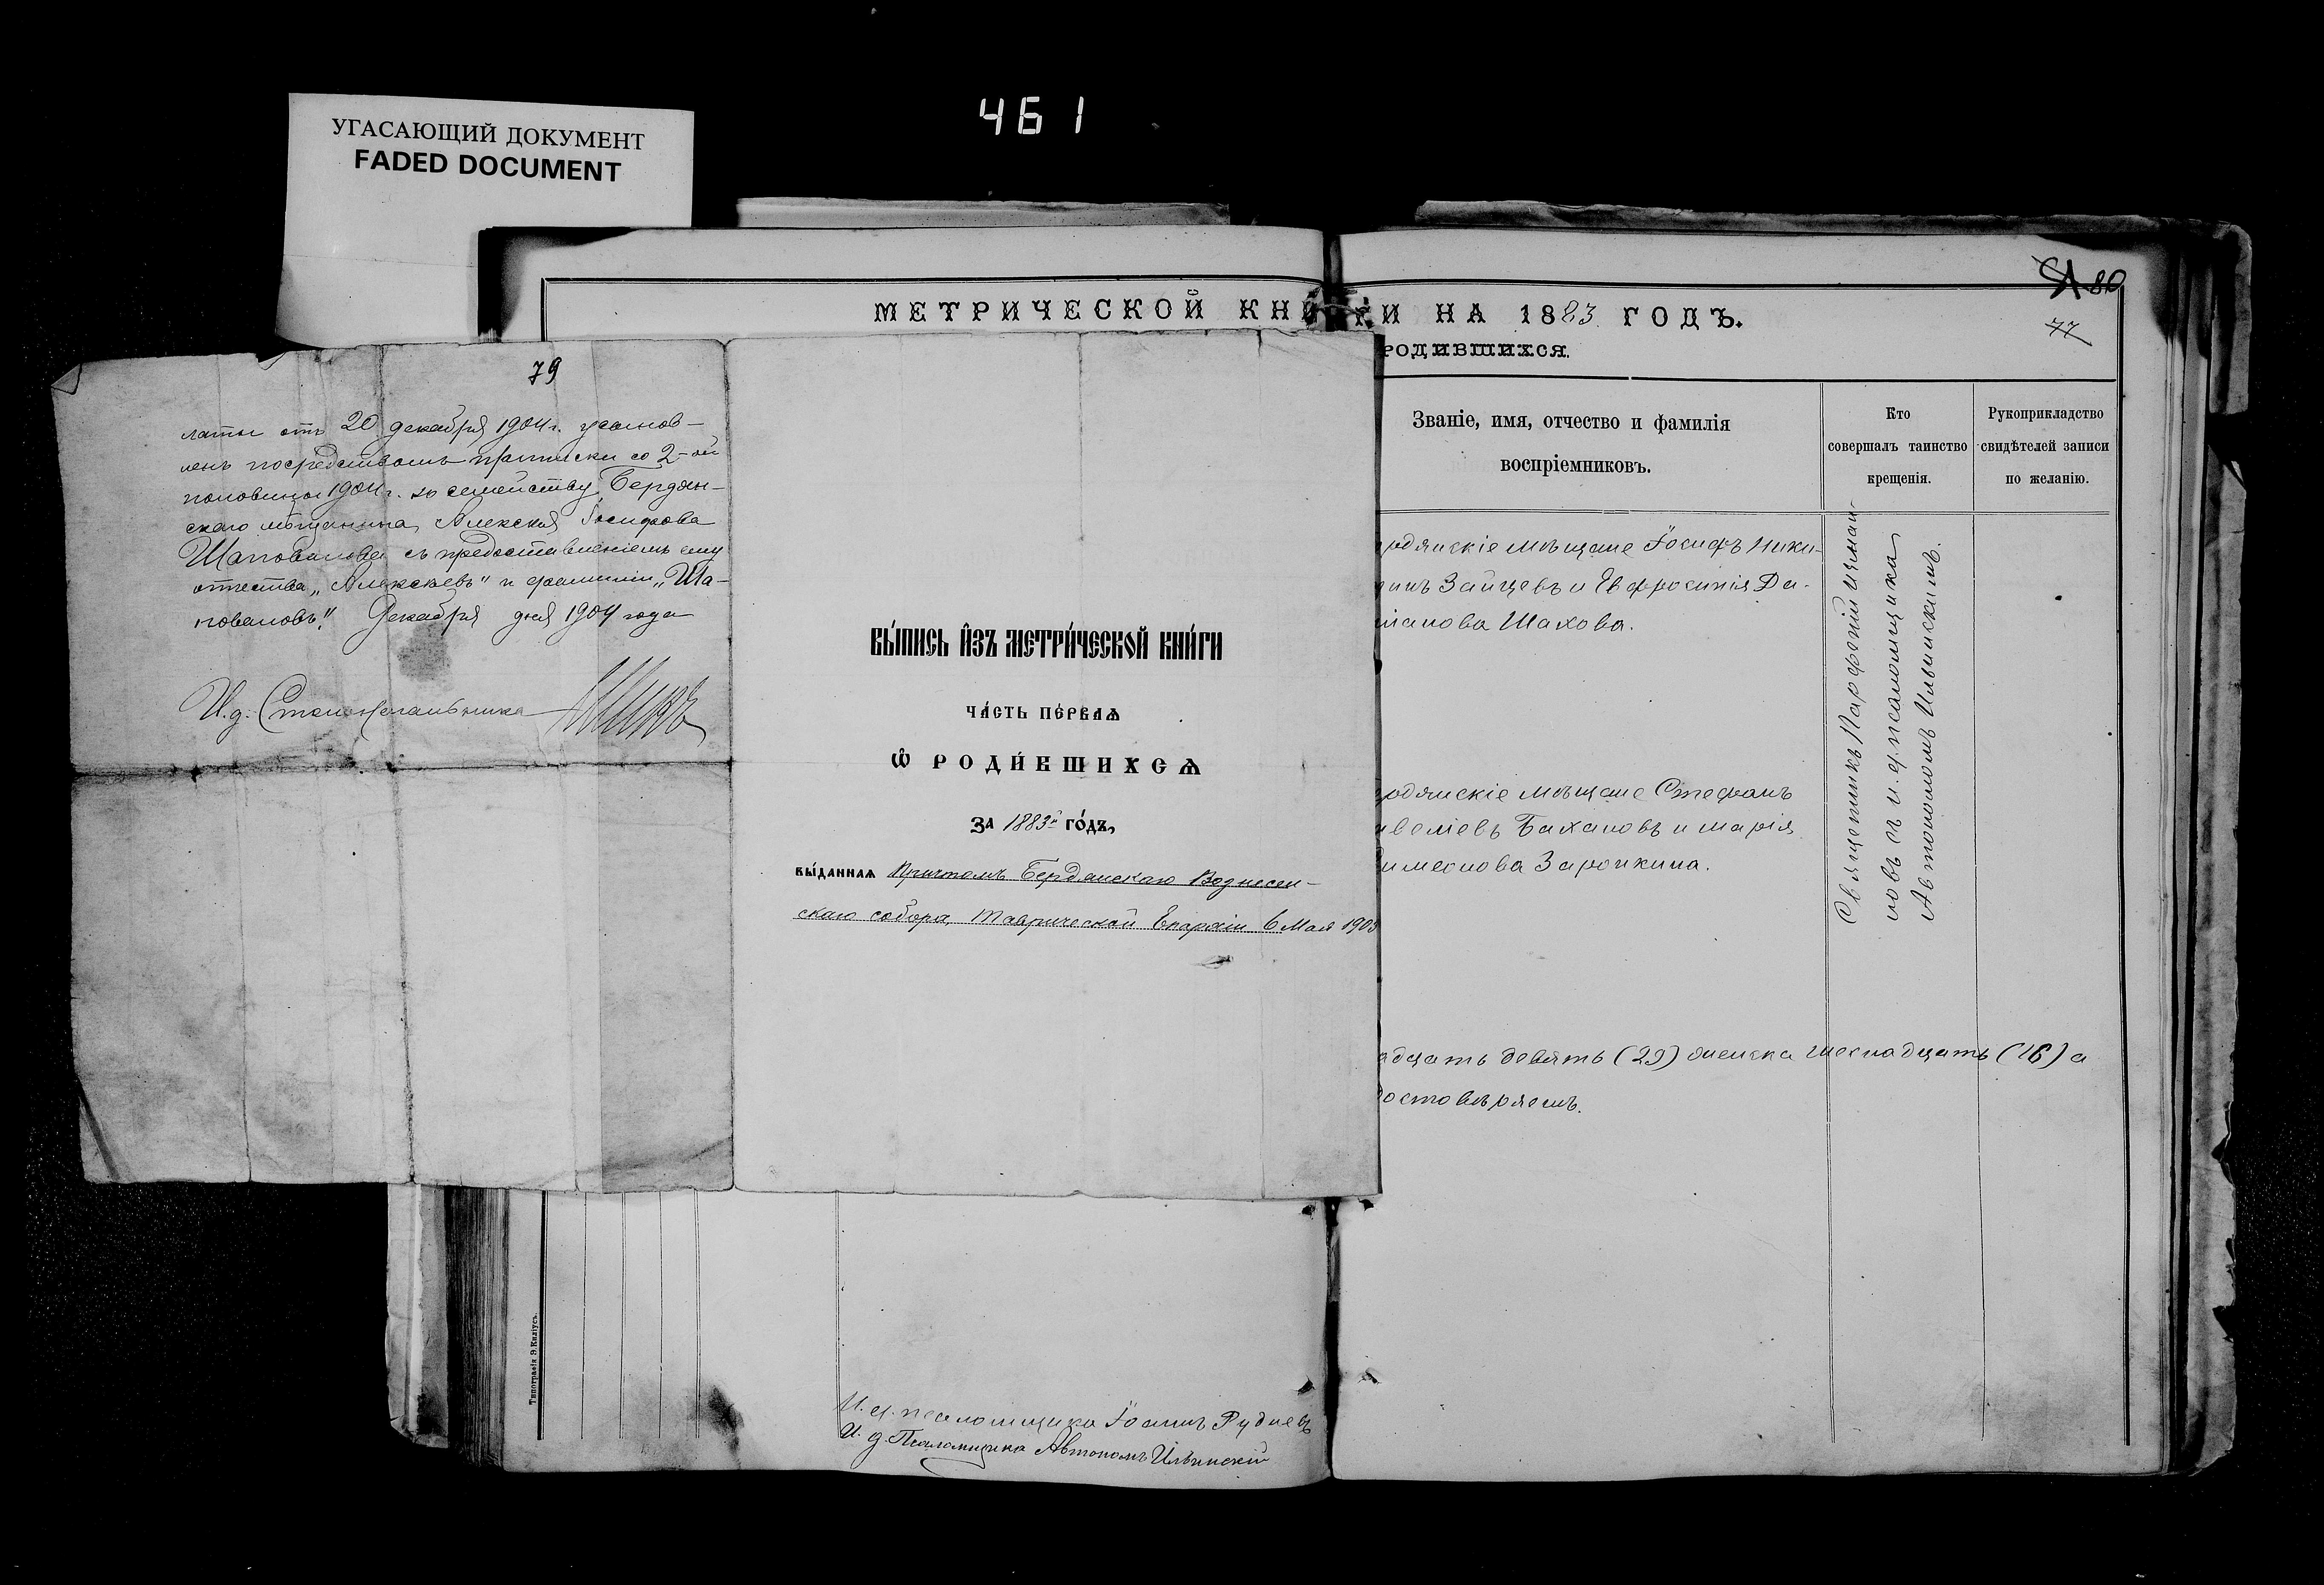 461
УГАСАЮЩИЙ ДОКУМЕНТ
FADED DOCUMENT
МЕТРИЧЕСКОЙ КНИГИ НА 1883 ГОДЪ.
РОДИВШИХСЯ.
80
77
79
латы отъ 20 декабря 1904 г. усынов-
ленъ посредствомъ приписки со 2-ой
половины 1904 г. къ семейству Бердян-
скаго мѣщанина Алексѣя Іосифова
Шаповалова съ предоставленіемъ ему
отчества „Алексѣевъ" и фамиліи „Ша-
поваловъ". Декабря дня 1904 года
И. д. Столоначальника
ВЫ́ПИСЬ И҆ЗЪ МЕТРИ́ЧЕСКОЙ КНИ́ГИ
ЧА́СТЬ ПЕ́РВАѦ
Ѡ҆ РОДИ́ВШИХСѦ
ЗА 1883й ГО́ДЪ,
ВЫ́ДАННАѦ Причтомъ Бердянскаго Вознесен-
скаго собора, Таврической Епархіи 6 Мая 1903
Званіе, имя, отчество и фамилія
воспріемниковъ.
Кто
совершалъ таинство
крещенія.
Рукоприкладство
свидѣтелей записи
по желанію.
рдянскіе мѣщане Іосифъ Ники-
Зайцевъ и Евфросинія Да-
Шахова.
рдянскіе мѣщане Стефанъ
Бахановъ и Марія
Зарочкина.
Священникъ Парфеній
новъ съ и. д. псаломщика
Автономомъ Ильинскимъ.
дцать девять (29) женска шеснадцать (16) а
достовѣряемъ.
Типографія Э. Киліусъ.
И. д. псаломщика Іоаннъ Рудневъ
И. д. Псаломщика Автономъ Ильинскій